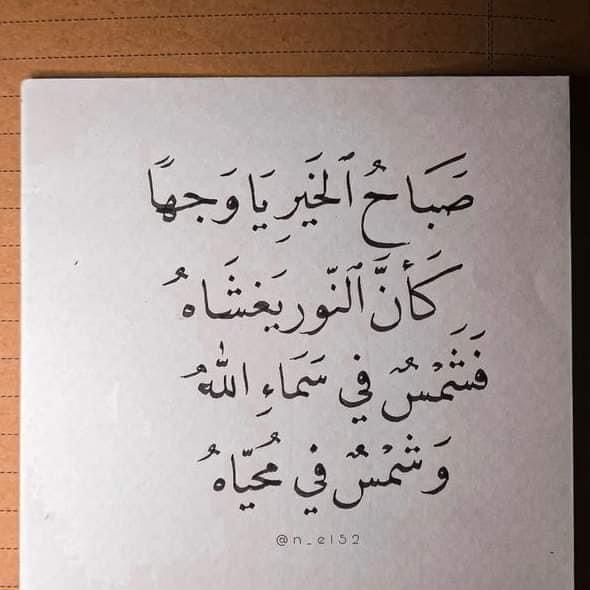 صَبَاحُ ٱلخَيرِ يَا وَجهًا
كَأَنَّ ٱلنّور يَغشَاهُ
فَشَمْسٌ في سَمَاءِ اللّٰهُ
وَشَمْسٌ في مُحَيّاهُ
@n_el52